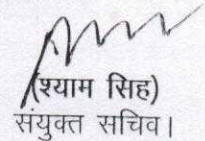 (श्याम सिह)
संयुक्त सचिव।